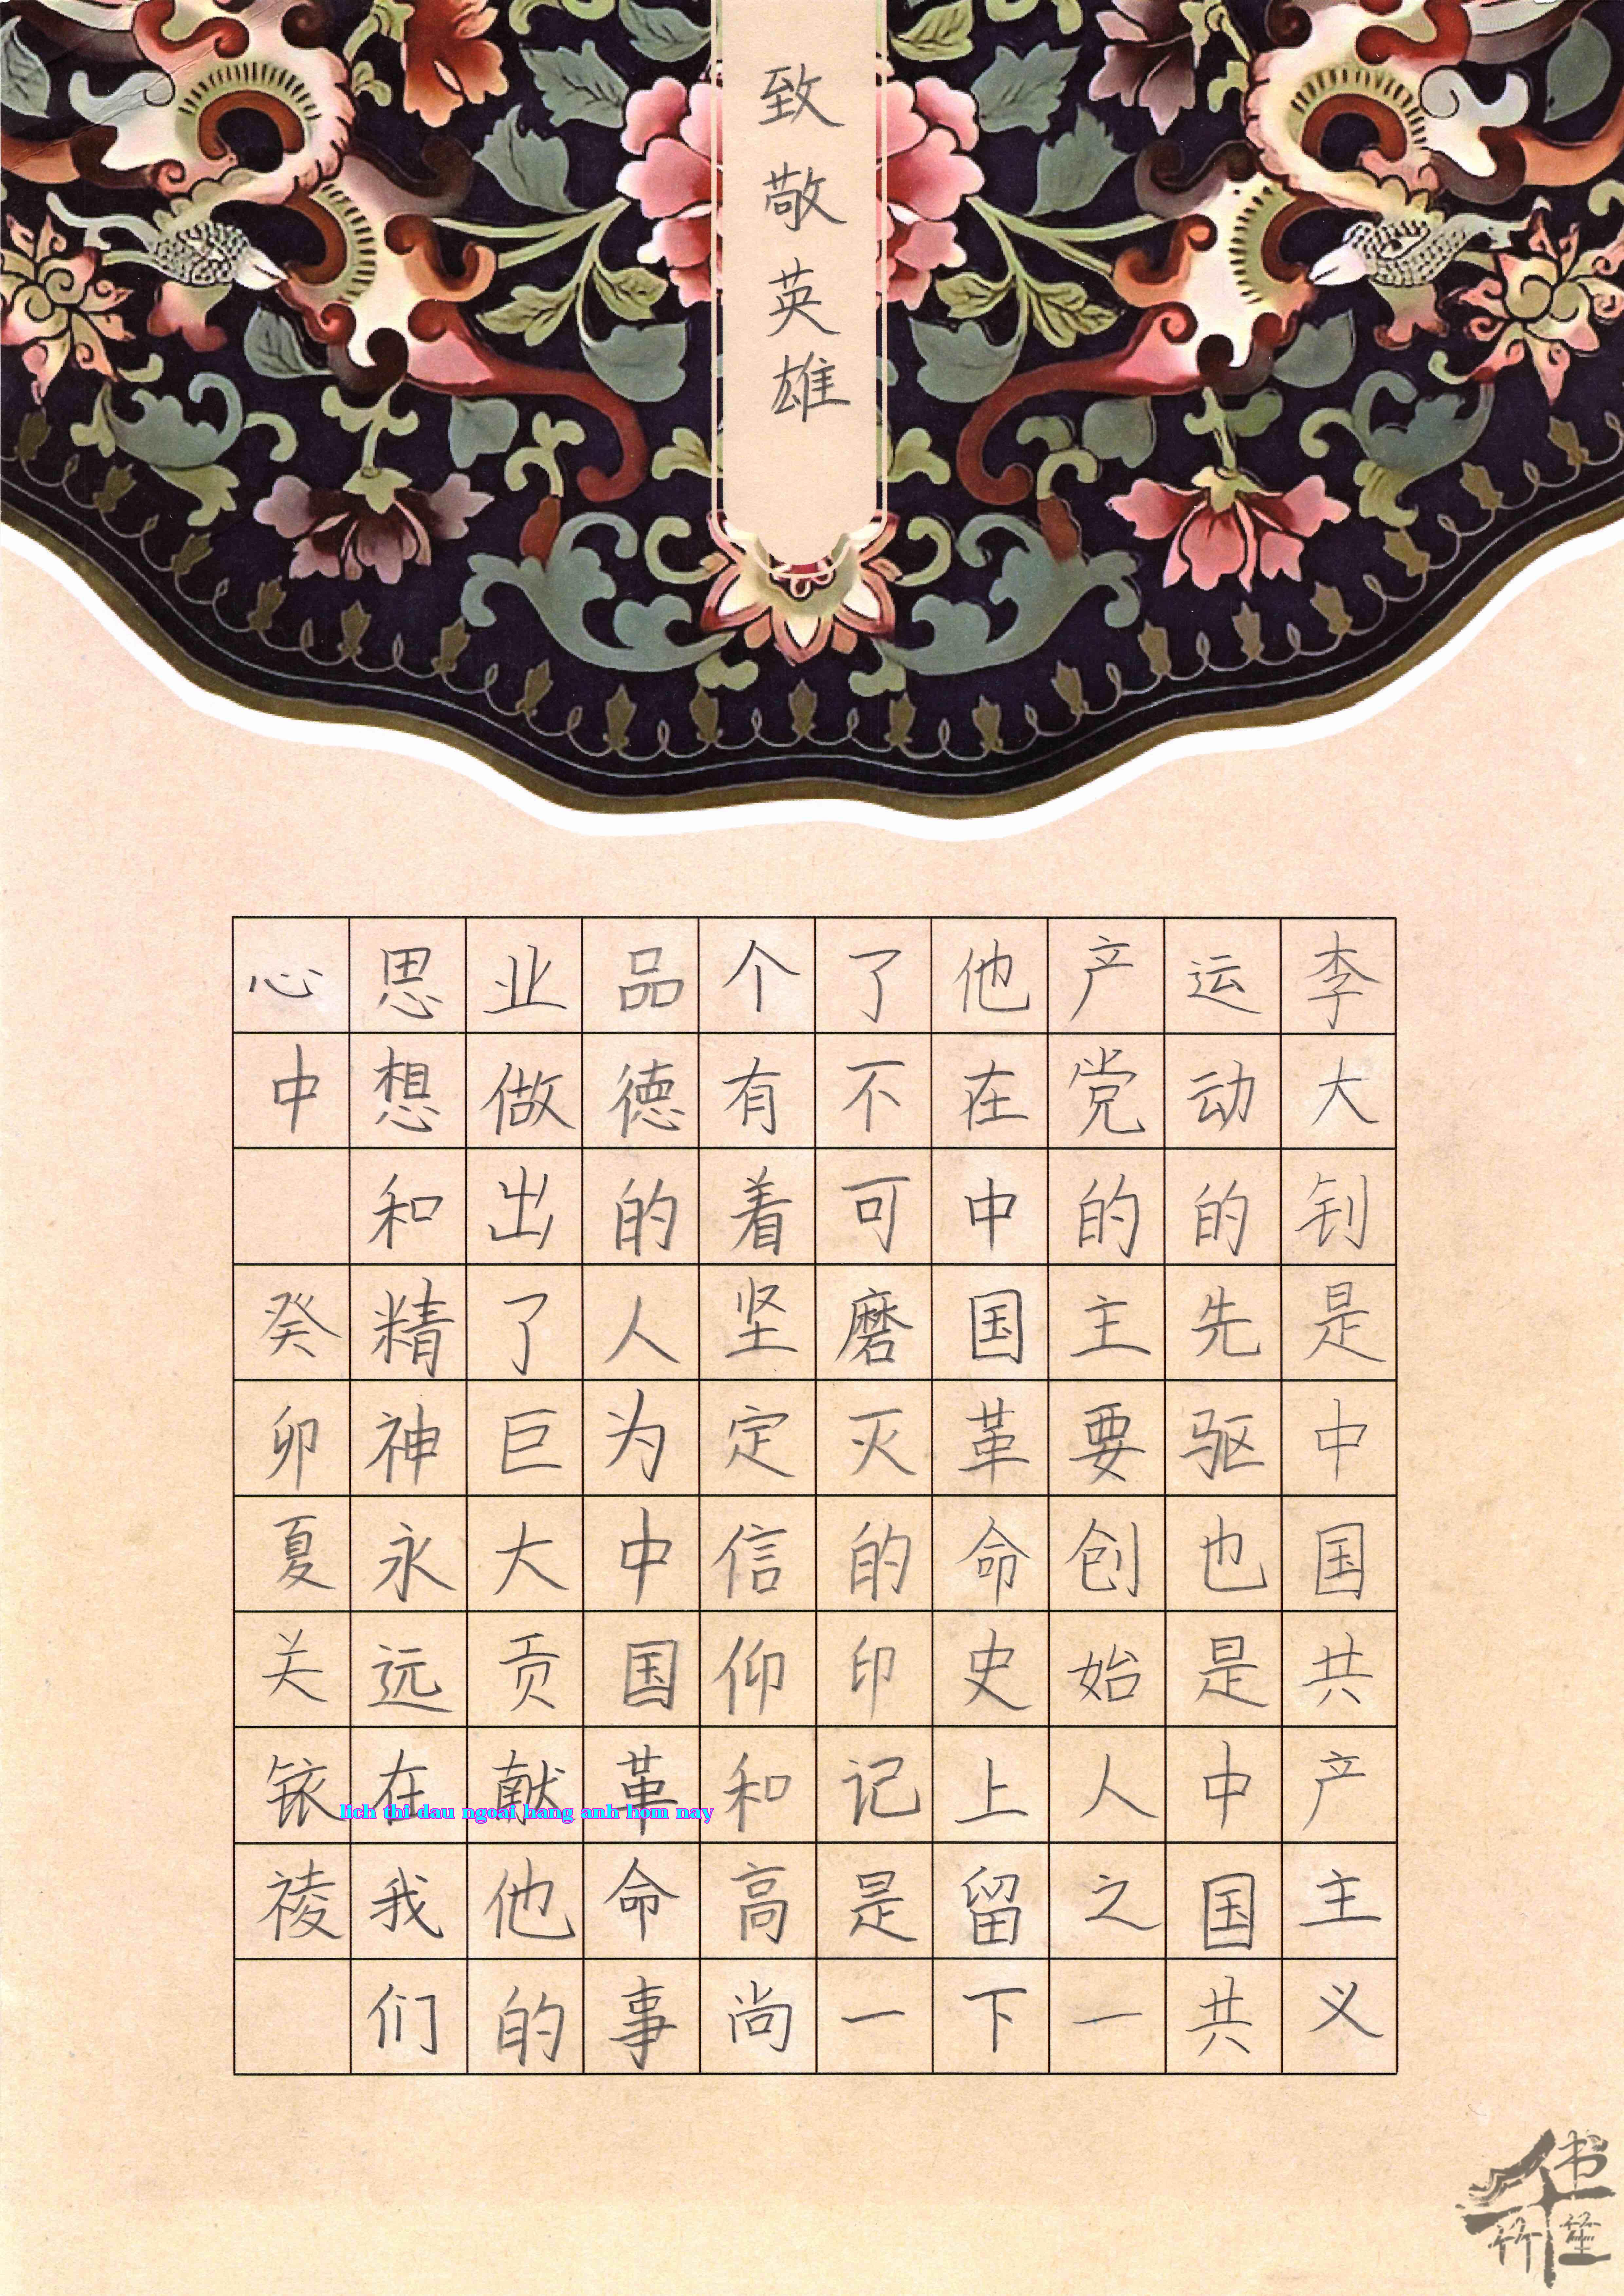 致敬英雄
李大钊是中国共产主义
运动的先驱也是中国共
产党的主要创始人之一
他在中国革命史上留下
了不可磨灭的印记是一
个有着坚定信仰和高尚
品德的人为中国革命事
业做出了巨大贡献他的
思想和精神永远在我们
心中 癸卯夏关铱祾
lich thi dau ngoai hang anh hom nay